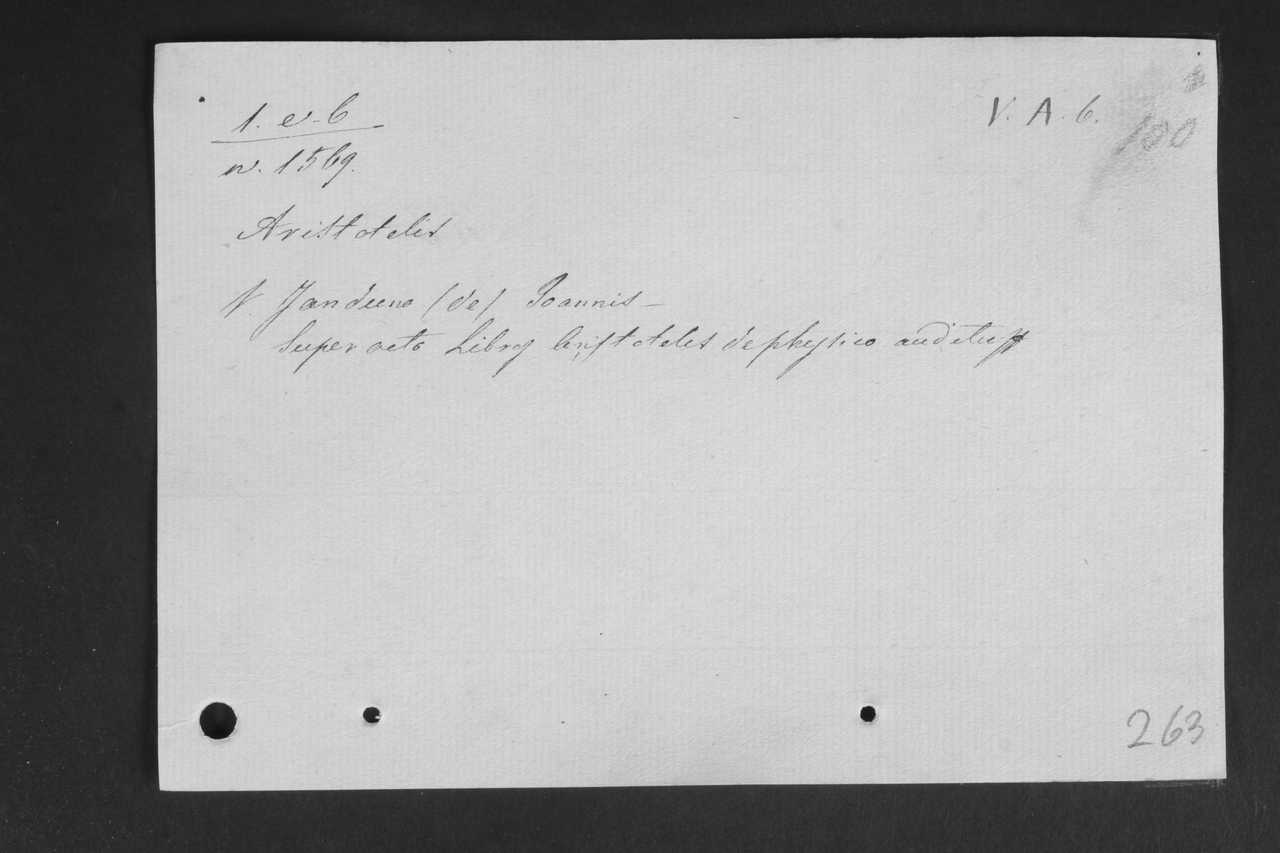 1. e. 6
V. A. 6.
100
n. 1569.
Aristotelis
V. Janduno (de) Joannis -
Super octo Libros Aristotelis de physico auditu
263